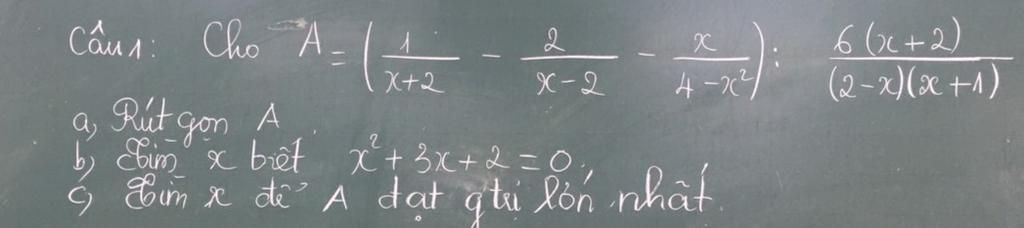 Câu 1: Cho A = (1/(x+2) - 2/(x-2) - x/(4-x²)) : 6(x+2)/((2-x)(x+1))
a, Rút gọn A.
b, Tìm x biết x² + 3x + 2 = 0.
c, Tìm x để A đạt gtrị lớn nhất.